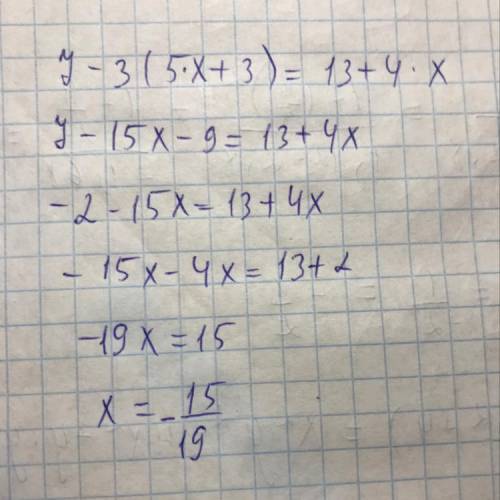 7 - 3(5·x+3) = 13+4·x
7 - 15x - 9 = 13+4x
-2 - 15x = 13+4x
-15x - 4x = 13+2
-19x = 15
x = -15/19